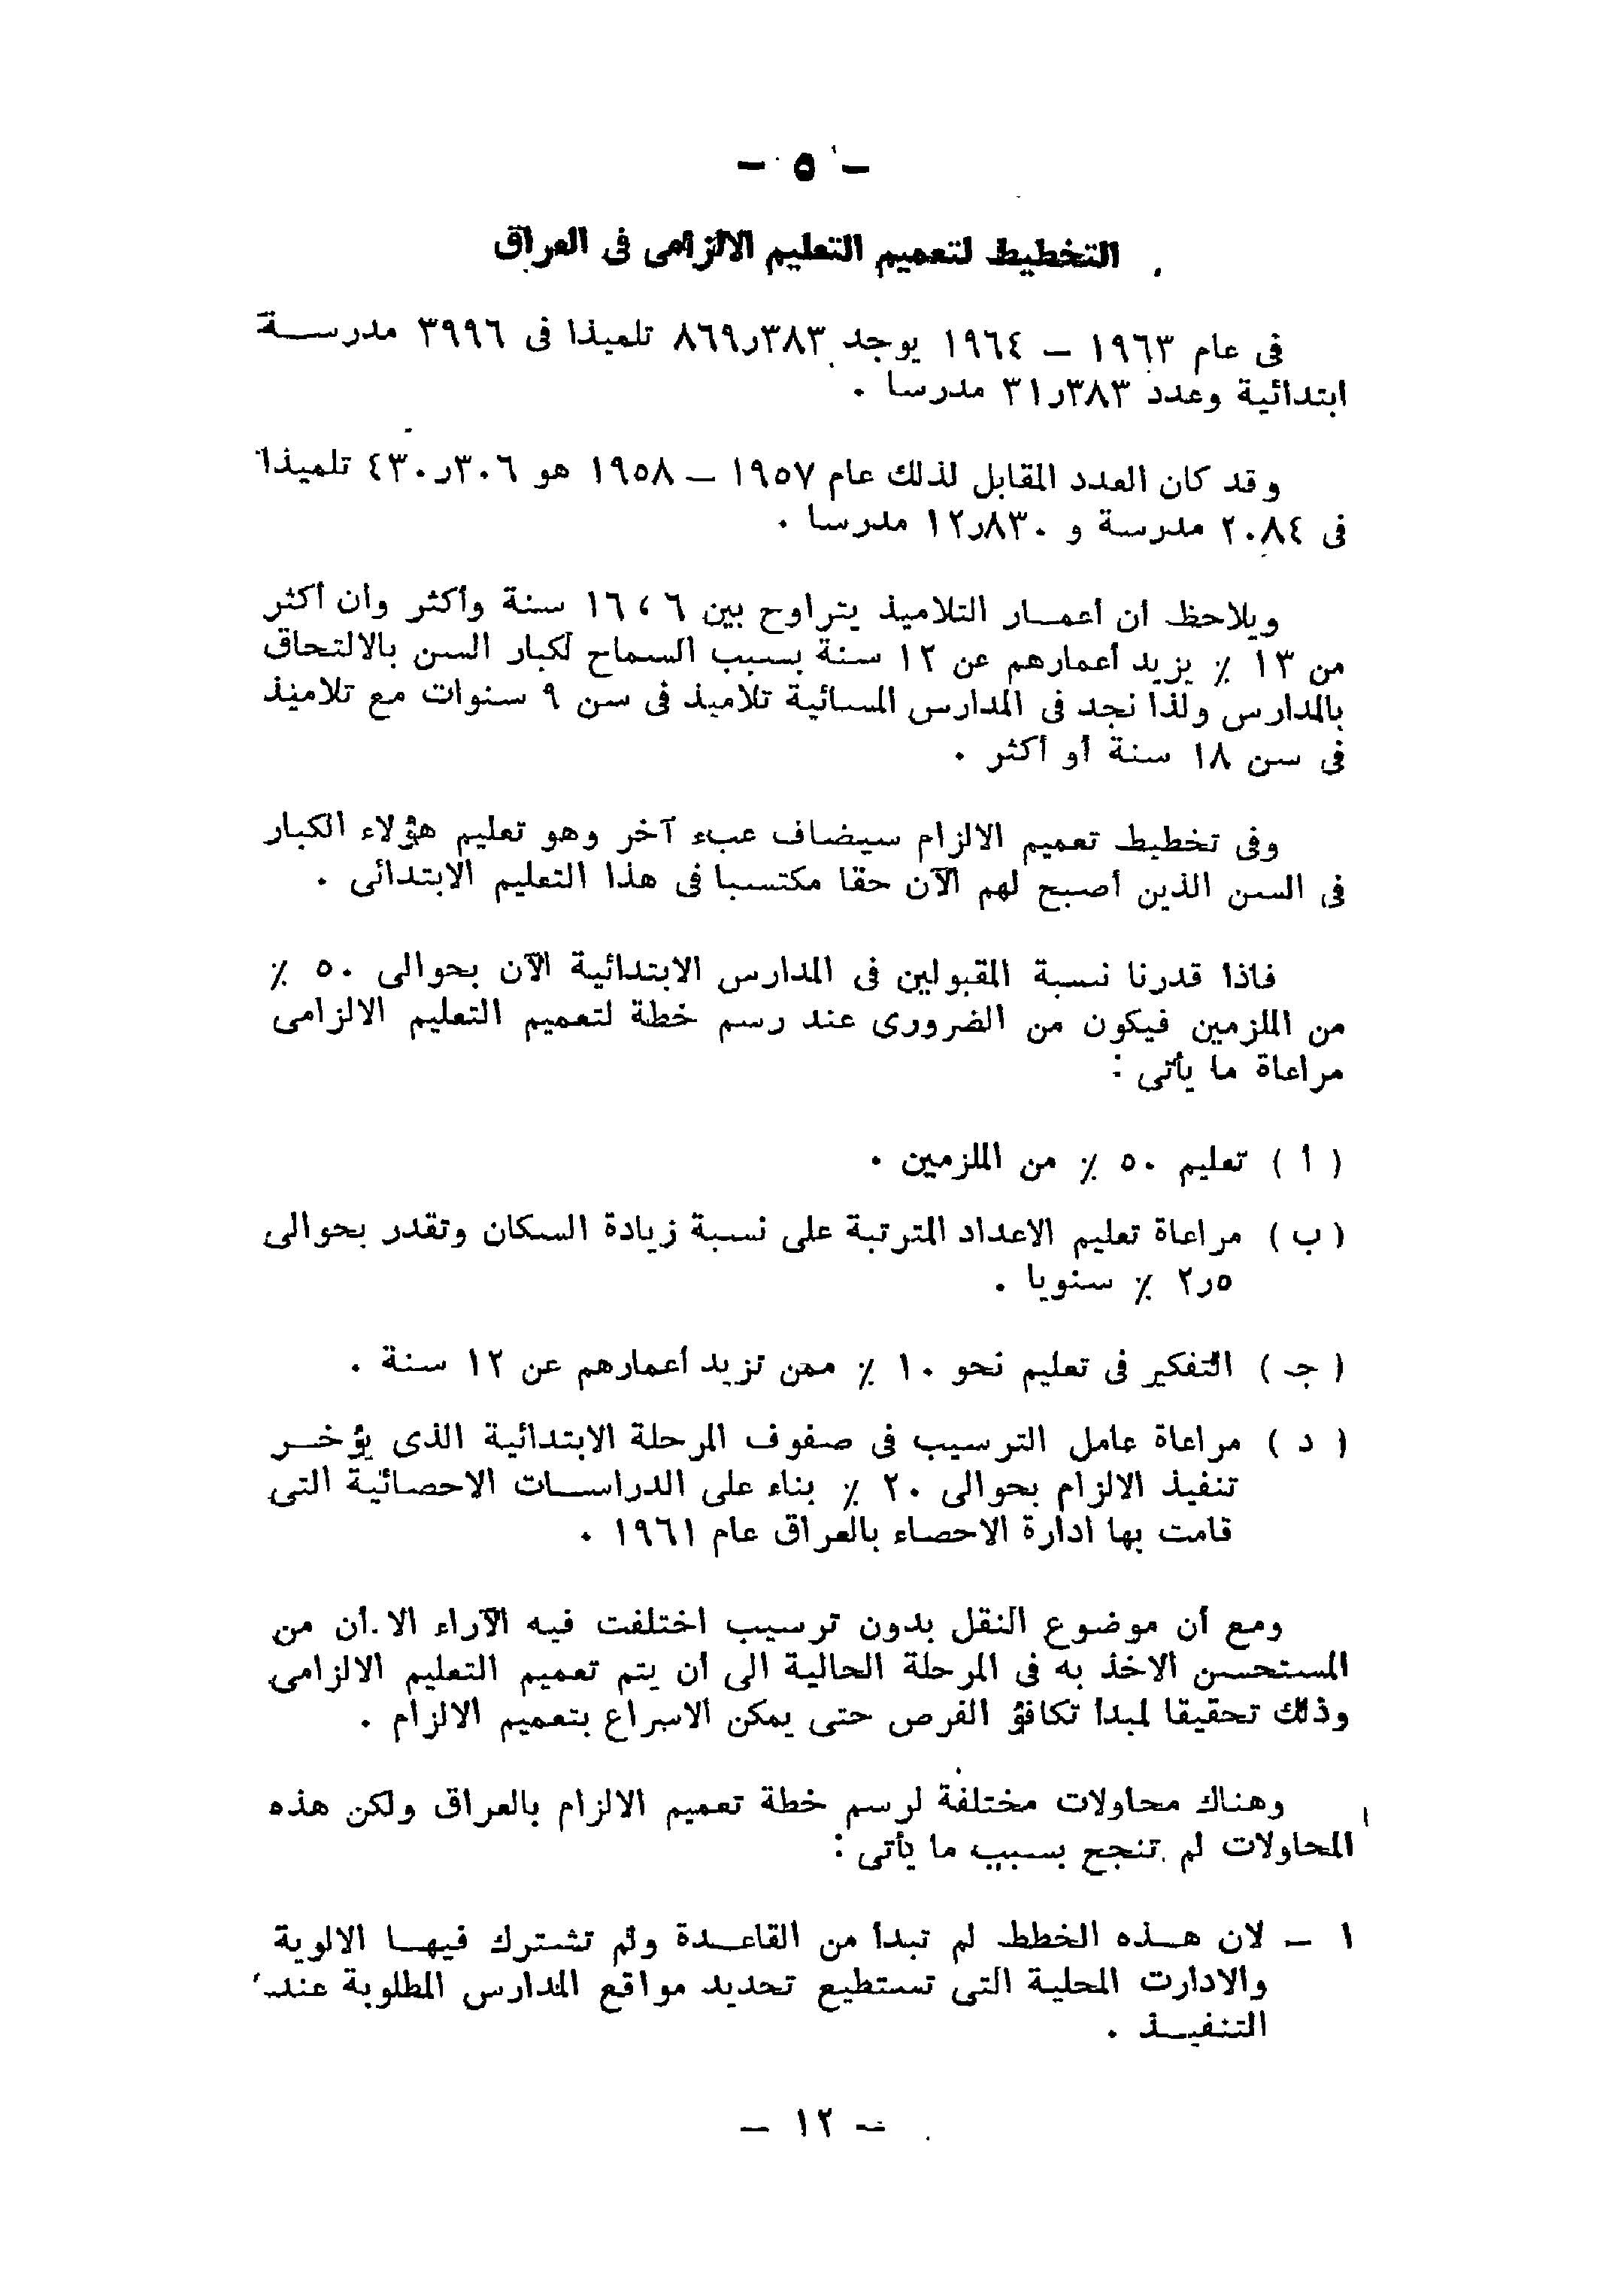 - ٥ -
التخطيط لتعميم التعليم الالزامى فى العراق
فى عام ١٩٦٣ - ١٩٦٤ يوجد ٣٨٣ر٨٦٩ تلميذا فى ٣٩٩٦ مدرسة
ابتدائية وعدد ٣٨٣ر٣١ مدرسا .
وقد كان العدد المقابل لذلك عام ١٩٥٧ - ١٩٥٨ هو ٣٠٦ر٤٣٠ تلميذا
فى ٢٠٨٤ مدرسة و ٨٣٠ر١٢ مدرسا .
ويلاحظ أن أعمار التلاميذ يتراوح بين ٦ ، ١٦ سنة وأكثر وأن أكثر
من ١٣ ٪ يزيد أعمارهم عن ١٢ سنة بسبب السماح لكبار السن بالالتحاق
بالمدارس ولذا نجد فى المدارس المسائية تلاميذ فى سن ٩ سنوات مع تلاميذ
فى سن ١٨ سنة أو أكثر .
وفى تخطيط تعميم الالزام سيضاف عبء آخر وهو تعليم هؤلاء الكبار
فى السن الذين أصبح لهم الآن حقا مكتسبا فى هذا التعليم الابتدائى .
فاذا قدرنا نسبة المقبولين فى المدارس الابتدائية الآن بحوالى ٥٠ ٪
من الملزمين فيكون من الضرورى عند رسم خطة لتعميم التعليم الالزامى
مراعاة ما يأتى :
( أ ) تعليم ٥٠ ٪ من الملزمين .
( ب ) مراعاة تعليم الاعداد المترتبة على نسبة زيادة السكان وتقدر بحوالى
٥ر٢ ٪ سنويا .
( جـ ) التفكير فى تعليم نحو ١٠ ٪ ممن تزيد أعمارهم عن ١٢ سنة .
( د ) مراعاة عامل الترسيب فى صفوف المرحلة الابتدائية الذى يؤخر
تنفيذ الالزام بحوالى ٢٠ ٪ بناء على الدراسات الاحصائية التى
قامت بها ادارة الاحصاء بالعراق عام ١٩٦١ .
ومع أن موضوع النقل بدون ترسيب اختلفت فيه الآراء الا أن من
المستحسن الاخذ به فى المرحلة الحالية الى أن يتم تعميم التعليم الالزامى
وذلك تحقيقا لمبدأ تكافؤ الفرص حتى يمكن الاسراع بتعميم الالزام .
وهناك محاولات مختلفة لرسم خطة تعميم الالزام بالعراق ولكن هذه
المحاولات لم تنجح بسبب ما يأتى :
١ - لان هذه الخطط لم تبدأ من القاعدة ولم تشترك فيها الالوية
والادارت المحلية التى تستطيع تحديد مواقع المدارس المطلوبة عند
التنفيذ .
- ١٢ -